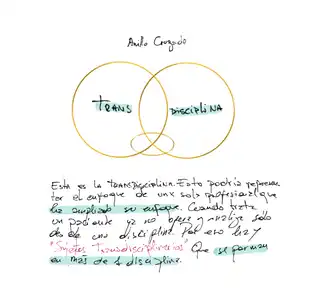 Anillo Cruzado
TRANS DISCIPLINA
Esta es la TRANSDisciplina. Esto podría represen
tar el enfoque de una sola profesional que
ha ampliado su enfoque. Cuando trata
un paciente ya no opera y analiza solo
desde una disciplina. Por eso hay
"Sujetos Transdisciplinarios" Que se forman
en más de 1 disciplina.